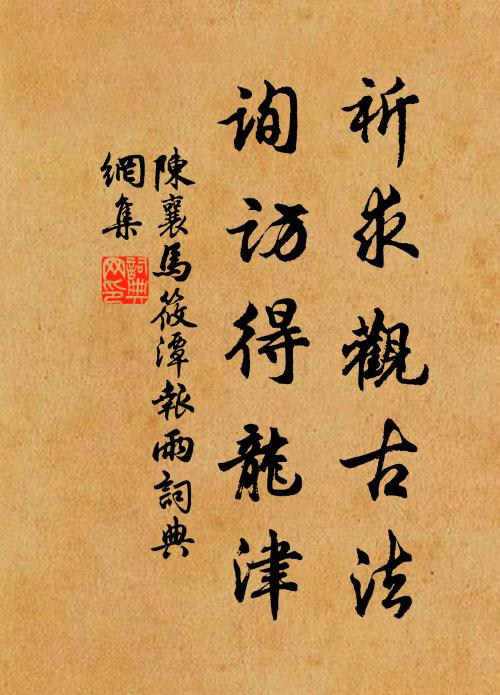 祈求觀古法
詢訪得龍津
陳襄馬筱潭報雨詞典
網集
詞典網印